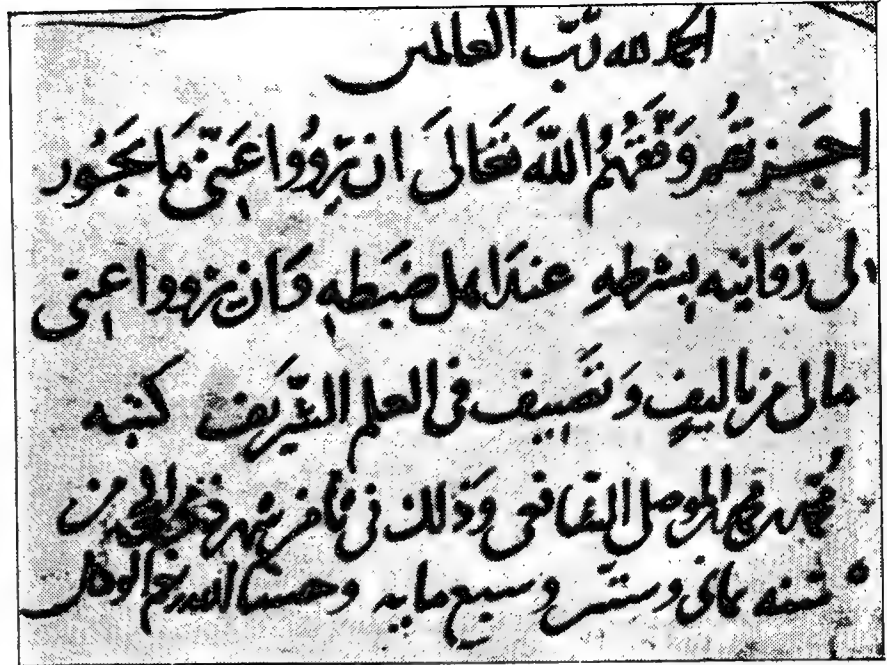 الحمد لله رب العالمين
اجزتهم وَفَّقَهُمُ اللّهَ تَعَالَى ان يَرْوُوا عَنّى مَا يَجُوز
لى رِوَايته بِشرطهِ عندَ اهل ضَبطهِ وَان يرووا عنى
مالى من تاليفٍ وَتصنيف فى العلم الشّريف كتبه
مُحمد بن محمد الموصلى الشافعى وَذلك فى ثامن شهر ذى الحجه من
سنه ثمانى وستين وسبع مايه وحسبنا الله ونعم الوكيل